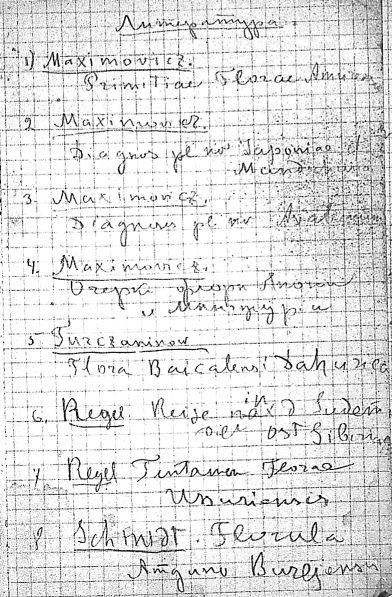 Литература.
1) Maximovicz.
Primitiae Florae Amurens
2 Maximovicz.
Diagnos pl nov Japoniae et
Mandshuria
3 Maximovicz.
Diagnoses pl no Asiaticarum
4. Maximovicz.
Очерки флоры
и Манчжурии
5 Turczaninow
Flora Baicalensi Dahurica
6. Regel Reise in d Suden
Ost Sibirien
7 Regel Tentamen Florae
Ussuriensis
8 Schmidt. Florula
Amguno Burejensi